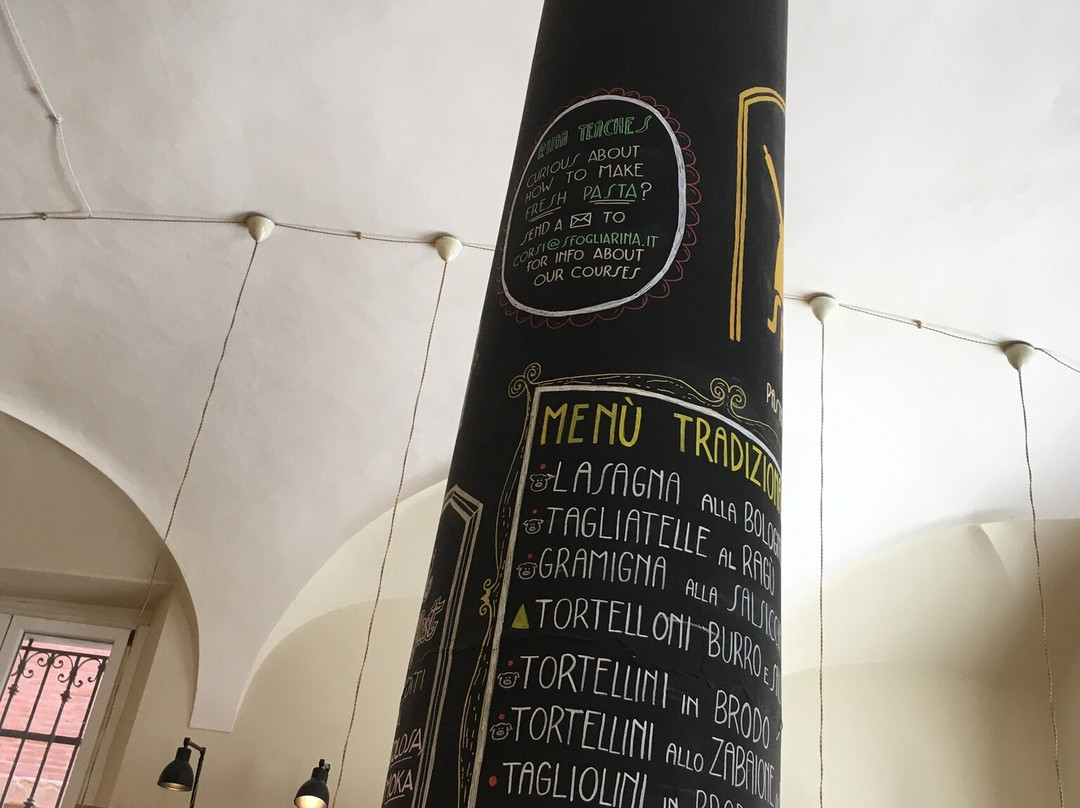 RINA TEACHES
CURIOUS ABOUT
HOW TO MAKE
FRESH PASTA?
SEND A ✉ TO
CORSI@SFOGLIARINA.IT
FOR INFO ABOUT
OUR COURSES
MENÙ
LASAGNA ALLA
TAGLIATELLE AL RAGÙ
GRAMIGNA ALLA
TORTELLONI BURRO E
TORTELLINI IN BRODO
TORTELLINI ALLO ZABAIONE
TAGLIOLINI IN